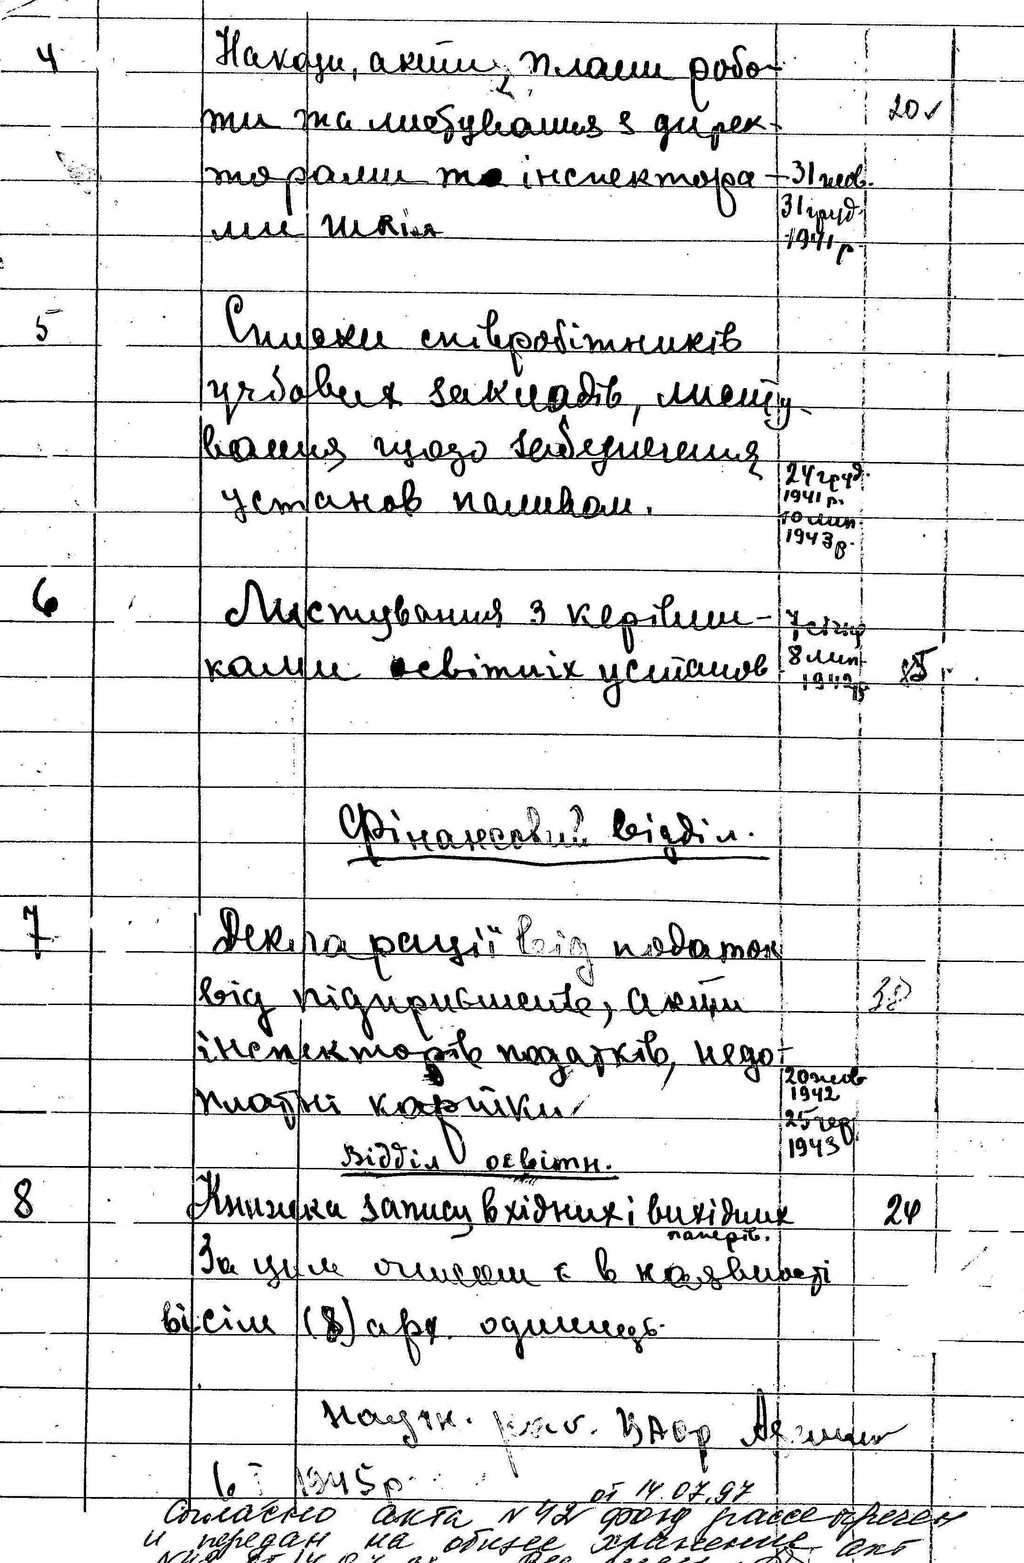 4 Накази, акти, плани робо-
ти та листування з дирек- 20
торами та інспектора- 31 жов.
ми шкіл 31 груд. 1941 р.
5 Списки співробітників
учбових закладів, листу-
вання щодо забезпечення
установ паливом. 24 груд. 1941 р. 10 лип. 1943 р.
6 Листування з керівни- 7 січня
ками освітніх установ 8 лип. 1942
Фінансовий відділ.
7 Декларації від податок
від підприємств, акти 38
інспекторів податків, недо-
платні картки 20 жов 1942 25 чер 1943
Відділ освітн.
8 Книжка запису вхідних і вихідних 24
паперів.
За цим описом є в наявності
вісім (8) арх. одиниць.
Наук. роб. ЦАОР
6 I 1945 р.
от 14.07.97
Согласно акта N 42 фонд рассекречен
и передан на общее хранение акт